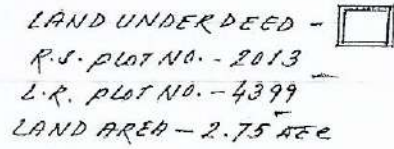 LAND UNDER DEED -
R.S. PLOT NO. - 2013
L.R. PLOT NO. - 4399
LAND AREA - 2.75 AEC